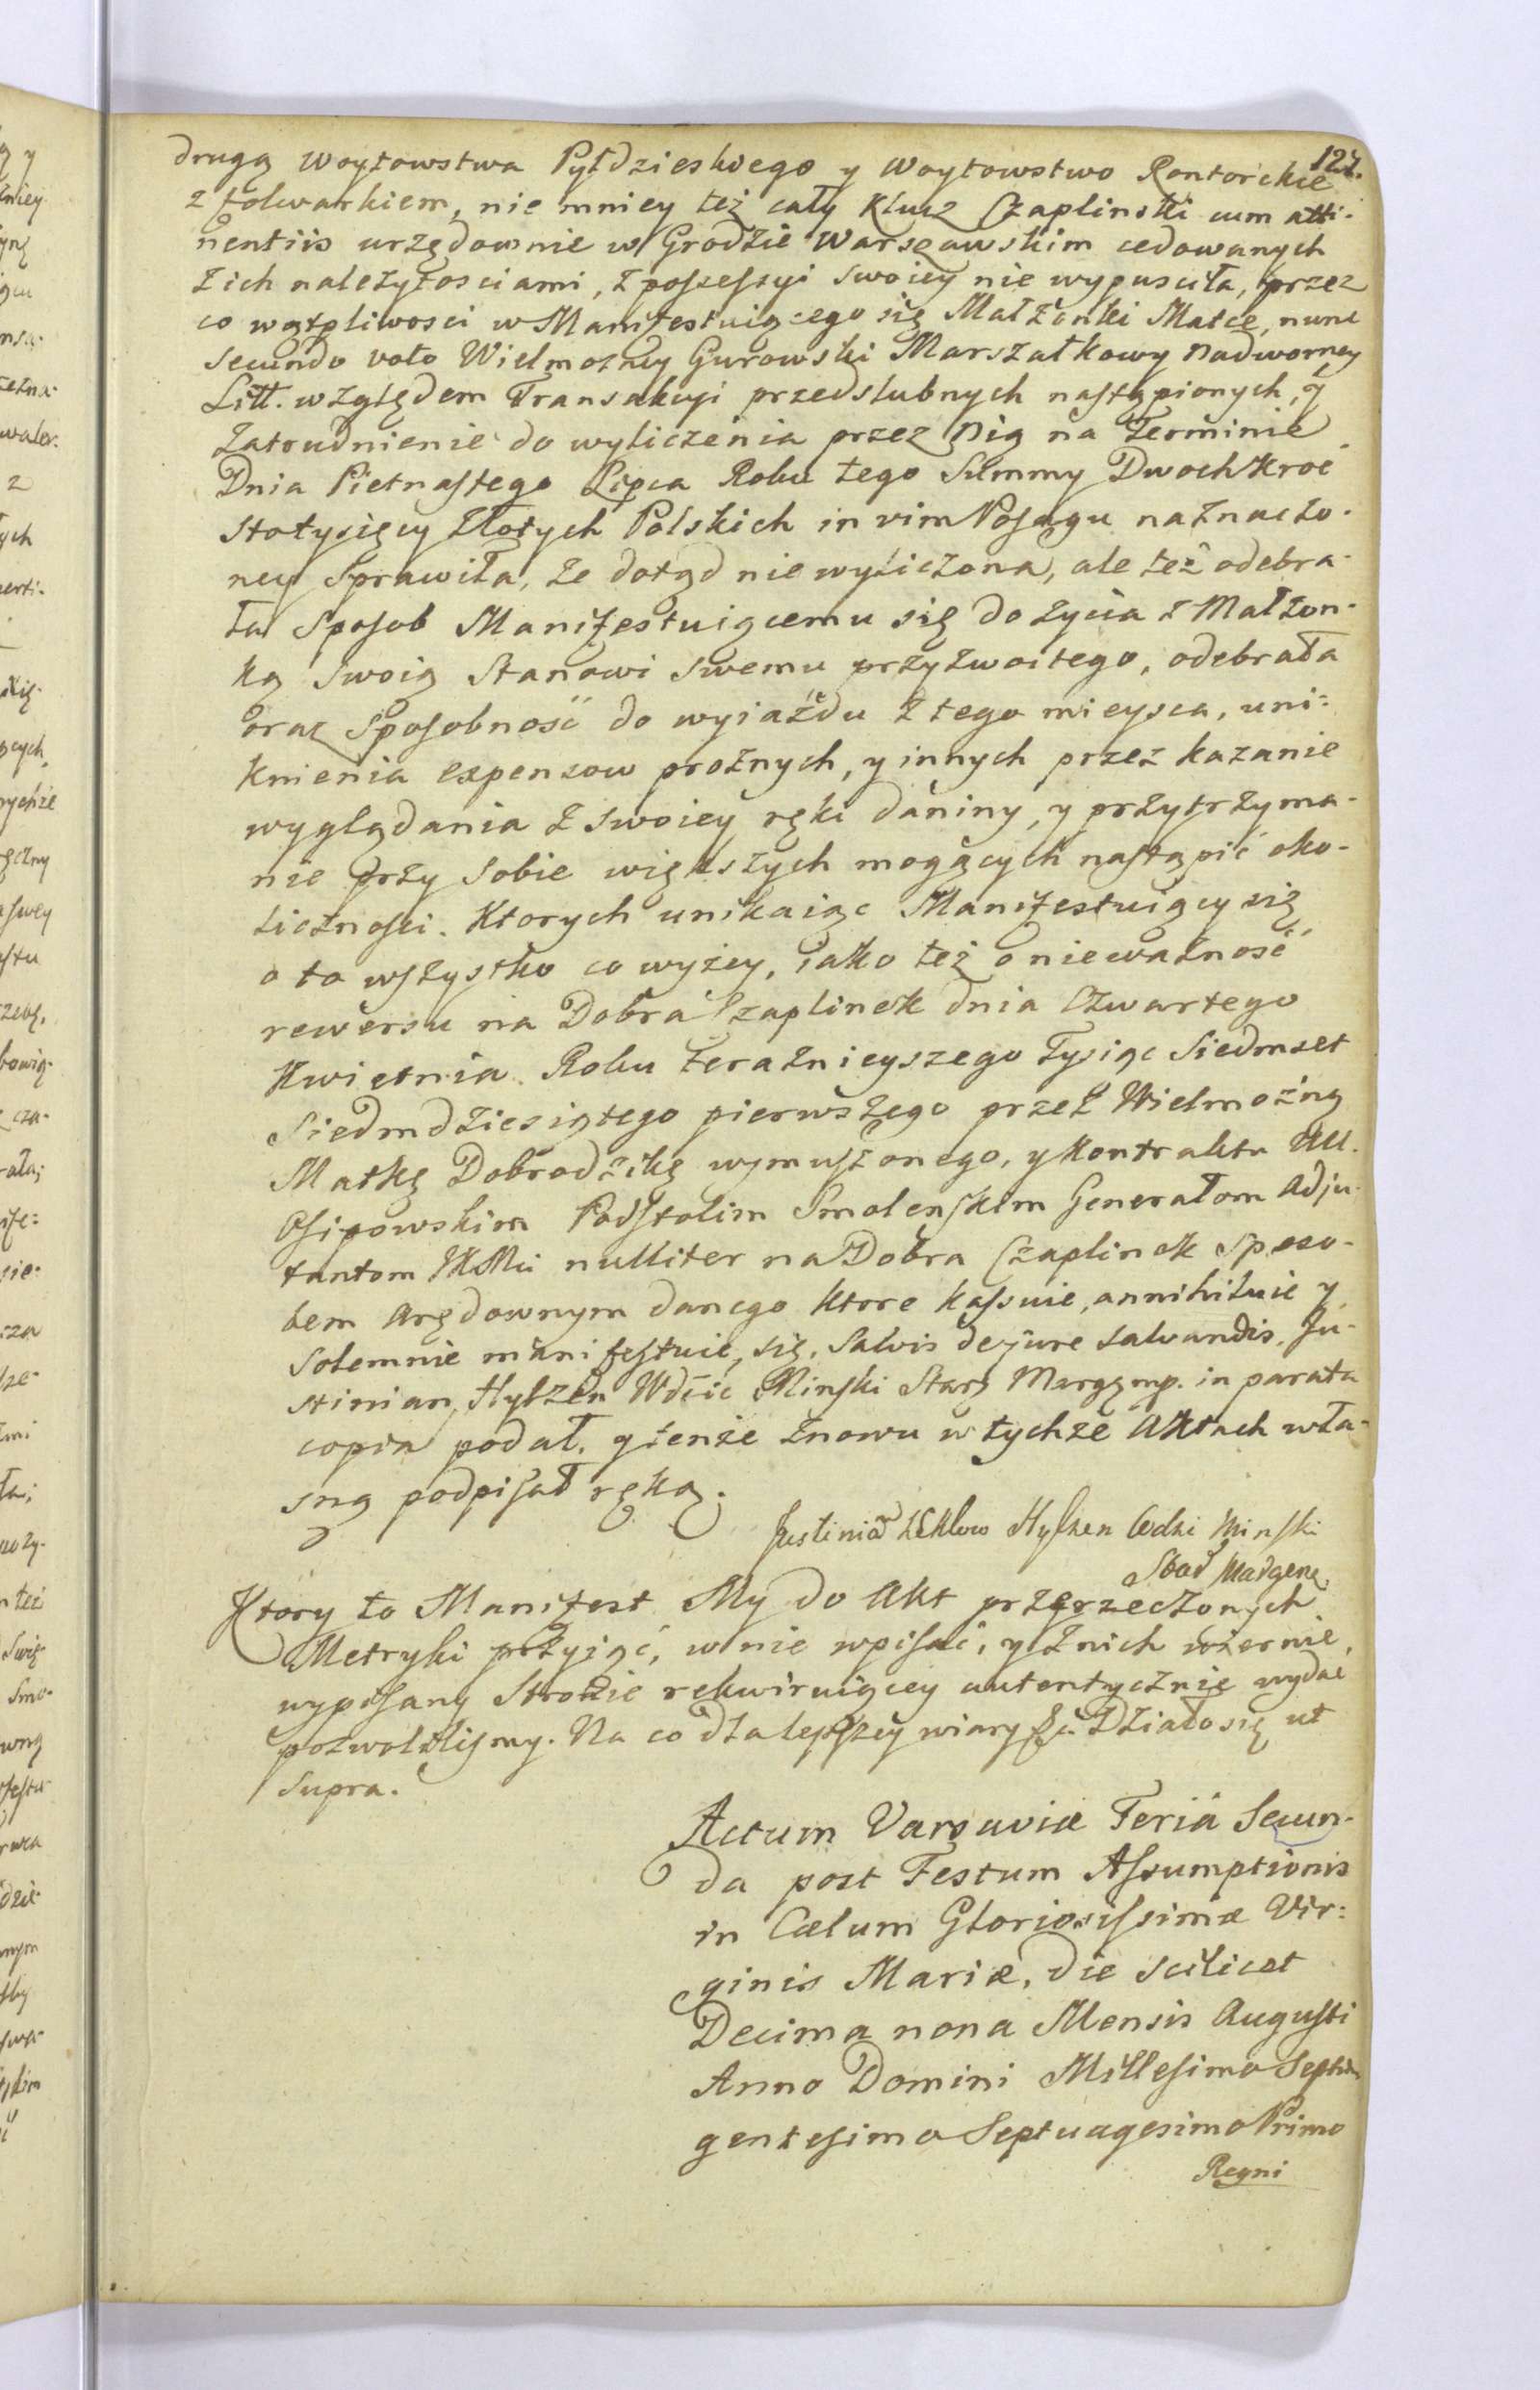 127.
drugą Woytowstwa Pyłdzieskiego y Woytowstwo Rontorckie
z folwarkiem, nie mniey też cały Klucz Czaplinski cum atti-
nentiis urzędownie w Grodzie Warszawskim cedowanych
z ich należytosciami, z possessyi swoiey nie wypusciła, przez
co wątpliwosci w Manifestuiącego się Małżonki Matce, nunc
secundo voto Wielmożney Gurowski Marszałkowy nadworney
Litt. względem Transakcyi przedslubnych nastąpionych, y
zatrudnienie do wyliczenia przez nią na Terminie
Dnia Pietnastego Lipca Roku tego Summy Dwochkroć
stotysięcy Złotych Polskich in vim Posagu naznaczo-
ney sprawiła, że dotąd nie wyliczona, ale też odebra-
ła sposob Manifestuiącemu się do życia z Małżon-
ką swoią Stanowi swemu przyzwoitego, odebrała
oraz sposobność do wyiazdu z tego mieysca, uni-
knienia expensow prożnych, y innych przez kazanie
wyglądania z swoiey ręki daniny, y przytrzyma-
nie przy sobie większych mogących nastąpić oko-
licznosci. Ktorych unikaiąc Manifestuiący się
o to wszystko co wyżey, iako też o nieważność
rewersu na Dobra Czaplinek dnia Czwartego
Kwietnia Roku teraznieyszego Tysiąc Siedmset
Siedmdziesiątego pierwszego przez Wielmożną
Matkę Dobrodzikę wymuszonego, y Kontraktu UU.
Osipowskim Podstolim Smolenskim Generałom Adju-
tantom JKMci nulliter na Dobra Czaplinek sposo-
bem Arędownym danego ktore kassuie, annihiluie y
solemnie manifestuie, się, salvis de jure salvandis. Ju-
stinian Hylzen Wdzic Minski Star Margzmp. in parata
copia podał. y tenże znowu w tychże Aktach wła-
sną podpisał ręką.
Justinia Hylzen Wdzi Minski
Stad Margene
Ktory to Manifest My do Akt przerzeczonych
Metryki przyiąć, w nie wpisać, y z nich wiernie,
wypisany Stronie rekwiruiącey autentycznie wydać
pozwolilismy. Na co dla lepszey wiary &c. Działo się ut
supra.
Actum Varsaviæ Feriâ Secun-
da post Festum Assumptionis
in Cælum Gloriosissimæ Vir-
ginis Mariæ, die scilicet
Decima nona Mensis Augusti
Anno Domini Millesimo Septin
gentesimo Septuagesimo Primo
Regni